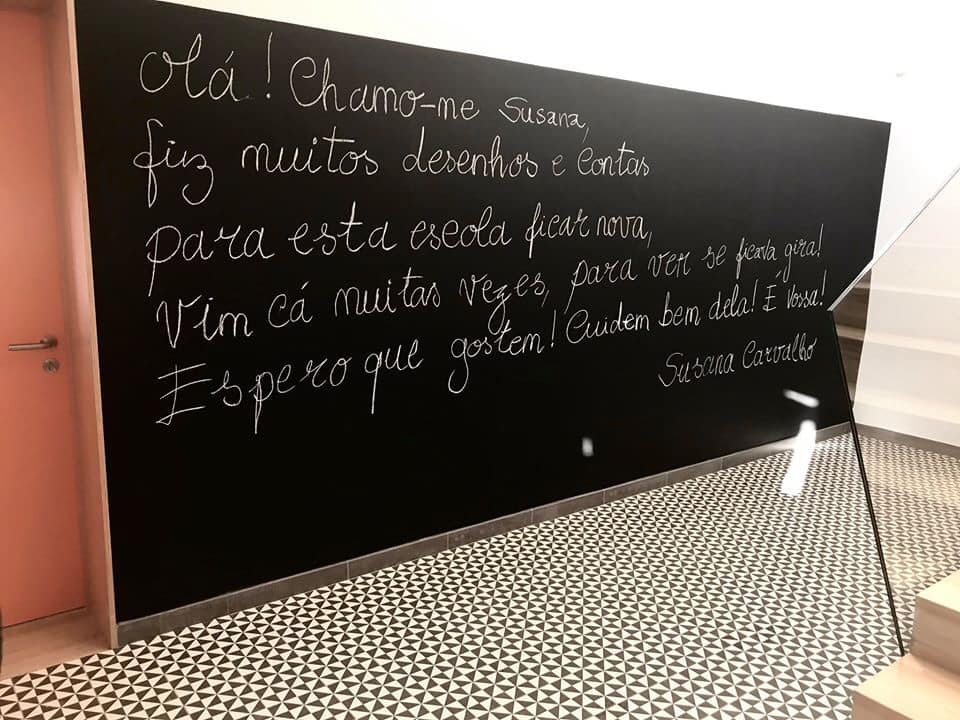 Olá! Chamo-me Susana,
fiz muitos desenhos e contas
para esta escola ficar nova,
Vim cá muitas vezes, para ver se ficava gira!
Espero que gostem! Cuidem bem dela! É Vossa!
Susana Carvalho